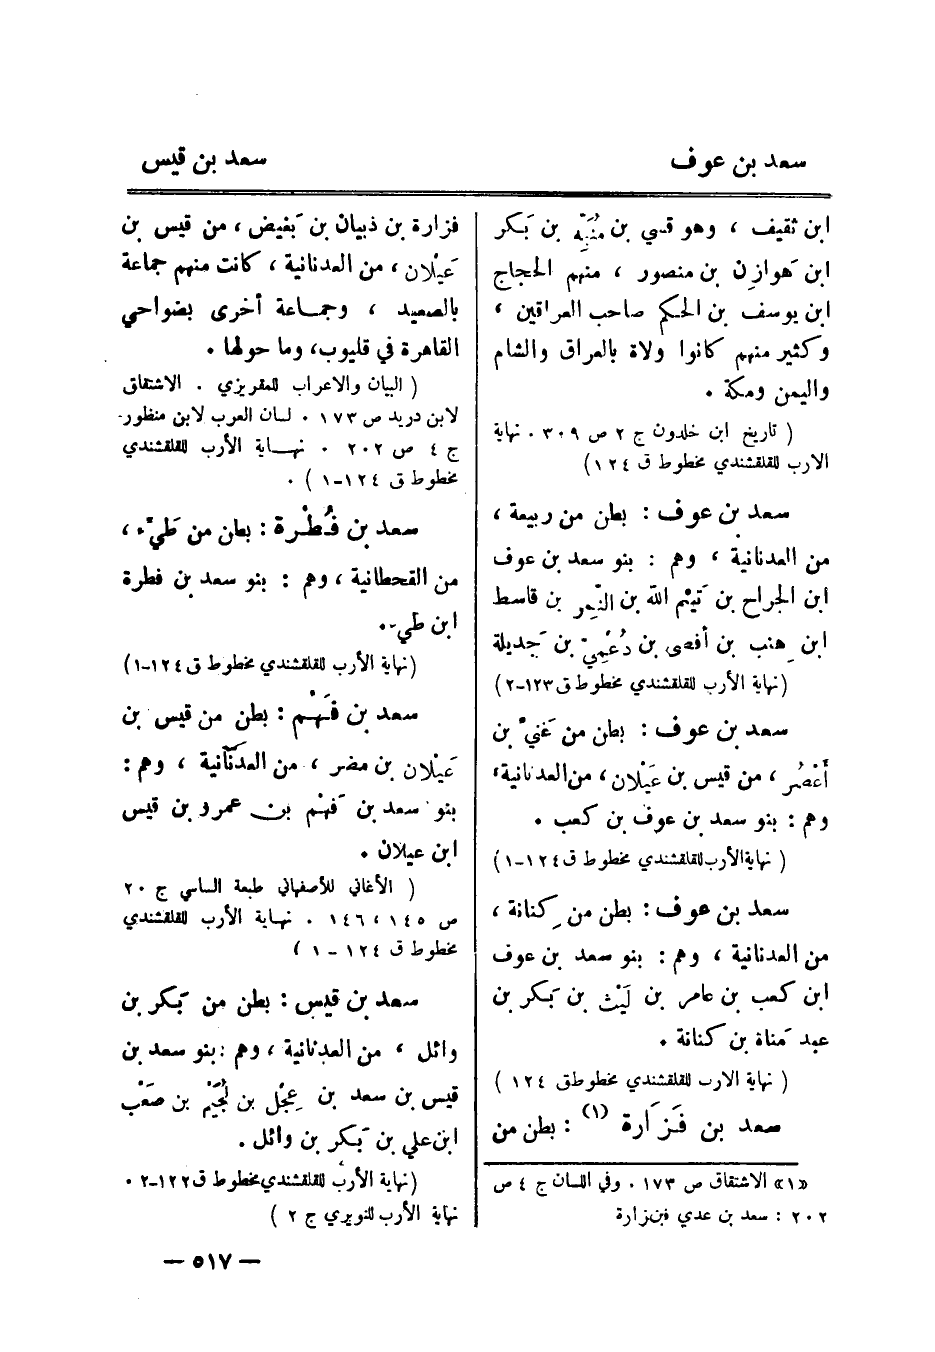 سعد بن عوف
سعد بن قيس
ابن ثقيف ، وهو قسي بن مُنَبِّه بن بَكر
ابن هَوازِن بن منصور ، منهم الحجاج
ابن يوسف بن الحكم صاحب العراقين ،
وكثير منهم كانوا ولاة بالعراق والشام
واليمن ومكة .
( تاريخ ابن خلدون ج ٢ ص ٣٠٩ . نهاية
الارب للقلقشندي مخطوط ق ١٢٤)
سعد بن عوف : بطن من ربيعة ،
من العدنانية ، وهم : بنو سعد بن عوف
ابن الجراح بن تَيْم الله بن النَّمِر بن قاسط
ابن هِنب بن أفصى بن دُعْمِيّ بن جَديلة
(نهاية الأرب للقلقشندي مخطوط ق ١٢٣-٢)
سعد بن عوف : بطن من غَنيّ بن
أَعْصُر ، من قيس بن عَيْلان ، من العدنانية ،
وهم : بنو سعد بن عوف بن كعب .
( نهاية الأرب للقلقشندي مخطوط ق ١٢٤-١)
سعد بن عوف : بطن من كِنانة ،
من العدنانية ، وهم : بنو سعد بن عوف
ابن كعب بن عامر بن لَيْث بن بَكر بن
عبد مَناة بن كنانة .
( نهاية الارب للقلقشندي مخطوط ق ١٢٤ )
سعد بن فَزَارة (١) : بطن من
«١» الاشتقاق ص ١٧٣ . وفي اللسان ج ٤ ص
٢٠٢ : سعد بن عدي فبزارة
فزارة بن ذبيان بن بَغيض ، من قيس بن
عَيْلان ، من العدنانية ، كانت منهم جماعة
بالصعيد ، وجماعة أخرى بضواحي
القاهرة في قليوب، وما حولها .
( البيان والاعراب للمقريزي . الاشتقاق
لابن دريد ص ١٧٣ . لسان العرب لابن منظور-
ج ٤ ص ٢٠٢ . نهاية الأرب للقلقشندي
مخطوط ق ١٢٤-١ ) .
سعد بن فُطْرة : بطن من طَيّء ،
من القحطانية ، وهم : بنو سعد بن فطرة
ابن طيء.
(نهاية الأرب للقلقشندي مخطوط ق ١٢٤-١)
سعد بن فَهْم : بطن من قيس بن
عَيْلان بن مضر ، من العدنانية ، وهم :
بنو سعد بن فَهْم بن عمرو بن قيس
ابن عيلان .
( الأغاني للأصفهاني طبعة الساسي ج ٢٠
ص ١٤٥ ، ١٤٦ . نهاية الأرب للقلقشندي
مخطوط ق ١٢٤ - ١ )
سعد بن قيس : بطن من بَكر بن
وائل ، من العدنانية ، وهم : بنو سعد بن
قيس بن سعد بن عِجْل بن لُجَيْم بن صَعْب
ابن علي بن بَكر بن وائل .
(نهاية الأرب للقلقشندي مخطوط ق ١٢٢-٢ .
نهاية الأرب للنويري ج ٢ )
— ٥١٧ —